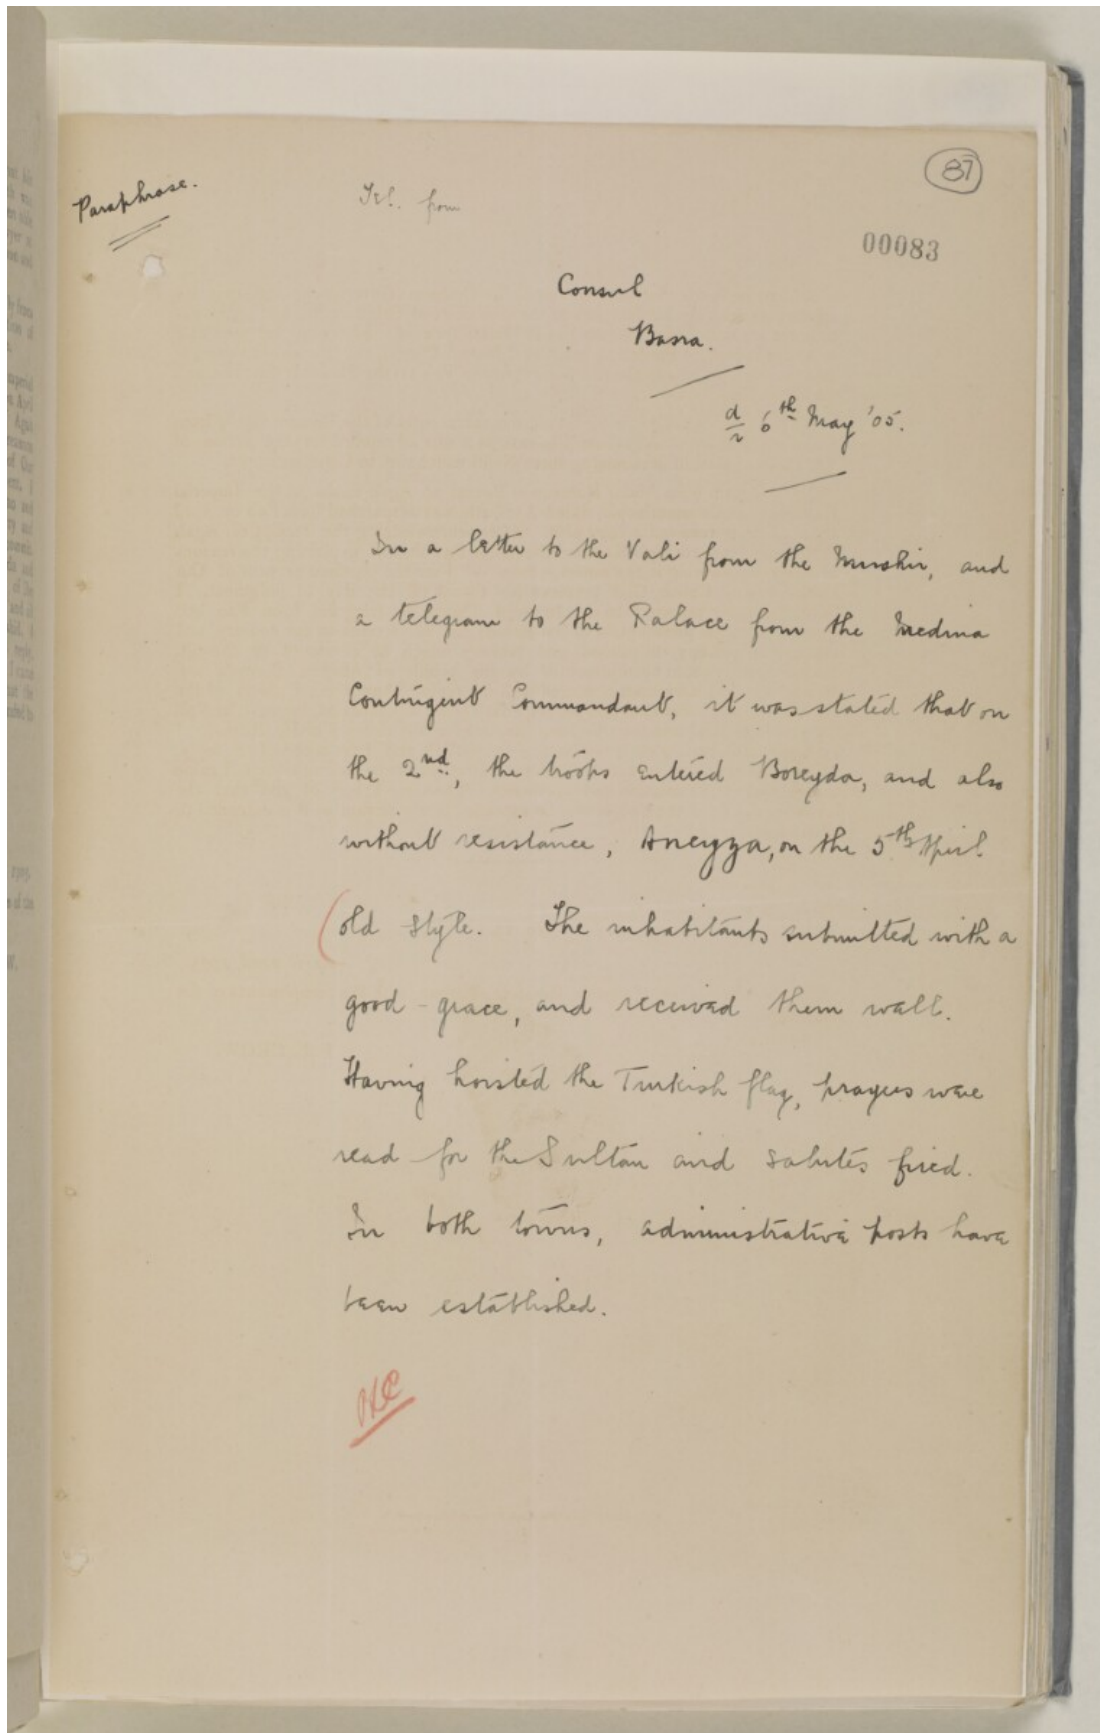 Paraphrase.
Tel. from
87
00083
Consul
Basra.
d/r 6th May '05.
In a letter to the Vali from the Mushir, and
a telegram to the Palace from the Medina
Contingent Commandant, it was stated that on
the 2nd, the troops entered Boreyda, and also
without resistance, Aneyza, on the 5th April
old style. The inhabitants submitted with a
good grace, and received them well.
Having hoisted the Turkish flag, prayers were
read for the Sultan and salutes fired.
In both towns, administrative posts have
been established.